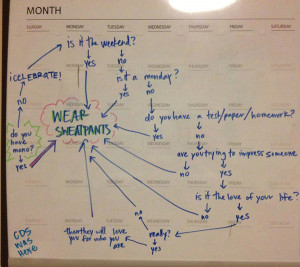 MONTH
SUNDAY MONDAY TUESDAY WEDNESDAY THURSDAY FRIDAY SATURDAY
is it the weekend?
yes
no
iCELEBRATE!
is it a monday?
yes
no
no
WEAR
SWEATPANTS
do you have a test/paper/homework?
yes
no
do you
have
mono?
yes
are you trying to impress someone
no
yes
is it the love of your life?
no
yes
no
really?
yes
then they will love
you for who you
are
CDS
WAS
HERE